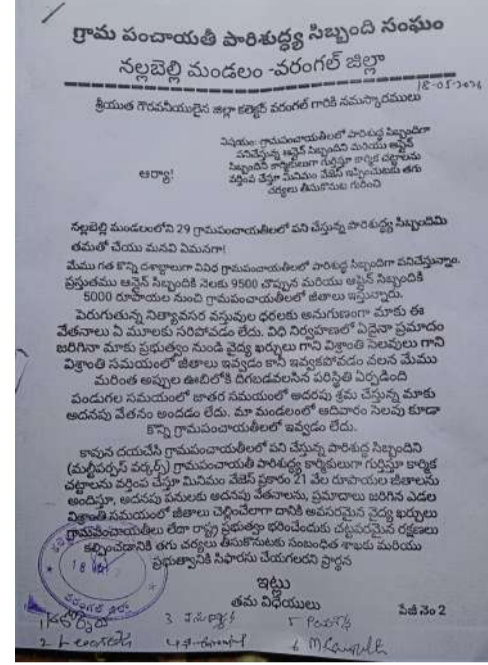 గ్రామ పంచాయతీ పారిశుద్ధ్య సిబ్బంది సంఘం
నల్లబెల్లి మండలం -వరంగల్ జిల్లా
18-05-2026
శ్రీయుత గౌరవనీయులైన జిల్లా కలెక్టర్ వరంగల్ గారికి నమస్కారములు
విషయం: గ్రామపంచాయతీలలో పారిశుద్ధ సిబ్బందిగా
పనిచేస్తున్న ఆన్లైన్ సిబ్బందిని మరియు ఆఫ్లైన్
సిబ్బందిని కార్మికులుగా గుర్తిస్తూ కార్మిక చట్టాలను
వర్తింప చేస్తూ మినిమం వేజెస్ ఇప్పించుటకు తగు
చర్యలు తీసుకొనుట గురించి
ఆర్యా!
నల్లబెల్లి మండలంలోని 29 గ్రామపంచాయతీలలో పని చేస్తున్న పారిశుద్ధ్య సిబ్బందిమి
తమతో చేయు మనవి ఏమనగా!
మేము గత కొన్ని దశాబ్దాలుగా వివిధ గ్రామపంచాయతీలలో పారిశుద్ధ సిబ్బందిగా పనిచేస్తున్నాం.
ప్రస్తుతము ఆన్లైన్ సిబ్బందికి నెలకు 9500 చొప్పున మరియు ఆఫ్లైన్ సిబ్బందికి
5000 రూపాయల నుంచి గ్రామపంచాయతీలలో జీతాలు ఇస్తున్నారు.
పెరుగుతున్న నిత్యావసర వస్తువుల ధరలకు అనుగుణంగా మాకు ఈ
వేతనాలు ఏ మూలకు సరిపోవడం లేదు. విధి నిర్వహణలో ఏదైనా ప్రమాదం
జరిగినా మాకు ప్రభుత్వం నుండి వైద్య ఖర్చులు గాని విశ్రాంతి సెలవులు గాని
విశ్రాంతి సమయంలో జీతాలు ఇవ్వడం కానీ ఇవ్వకపోవడం వలన మేము
మరింత అప్పుల ఊబిలోకి దిగబడవలసిన పరిస్థితి ఏర్పడింది
పండుగల సమయంలో జాతర సమయంలో అదనపు శ్రమ చేస్తున్న మాకు
అదనపు వేతనం అందడం లేదు. మా మండలంలో ఆదివారం సెలవు కూడా
కొన్ని గ్రామపంచాయతీలలో ఇవ్వడం లేదు.
కావున దయచేసి గ్రామపంచాయతీలలో పని చేస్తున్న పారిశుద్ధ్య సిబ్బందిని
(మల్టీపర్పస్ వర్కర్స్) గ్రామపంచాయతీ పారిశుద్ధ్య కార్మికులుగా గుర్తిస్తూ కార్మిక
చట్టాలను వర్తింప చేస్తూ మినిమం వేజెస్ ప్రకారం 21 వేల రూపాయల జీతాలను
అందిస్తూ, అదనపు పనులకు అదనపు వేతనాలను, ప్రమాదాలు జరిగిన ఎడల
విశ్రాంతి సమయంలో జీతాలు చెల్లించేలాగా దానికి అవసరమైన వైద్య ఖర్చులు
గ్రామపంచాయతీలు లేదా రాష్ట్ర ప్రభుత్వం భరించేందుకు చట్టపరమైన రక్షణలు
కల్పించడానికి తగు చర్యలు తీసుకొనుటకు సంబంధిత శాఖకు మరియు
ప్రభుత్వానికి సిఫారసు చేయగలరని ప్రార్థన
ఇట్లు
తమ విధేయులు
పేజీ నెం 2
వరంగల్ జిల్లా
18
1
2
3
4
5
6